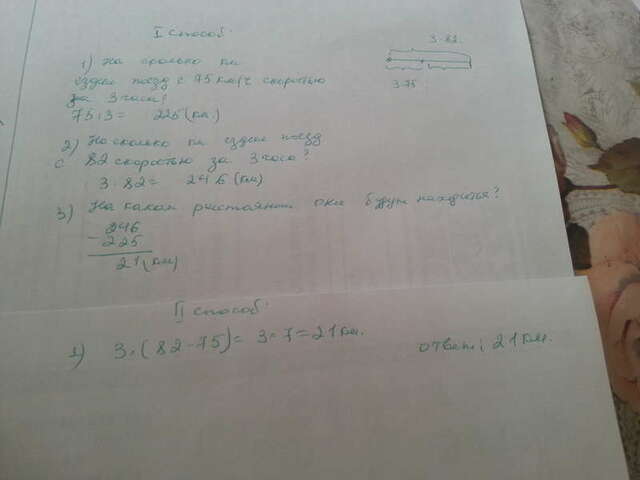 I способ:
3·82.
1) На сколько км
ездил поезд с 75 км/ч скоростью
за 3 часа?
3·75
75·3= 225(км.)
2) На сколько км ездил поезд
с 82 скоростью за 3 часа?
3·82= 246(км)
3) На каком расстоянии они будут находиться?
246
- 225
21(км)
II способ:
1) 3·(82-75)= 3·7=21км.
ответ: 21км.